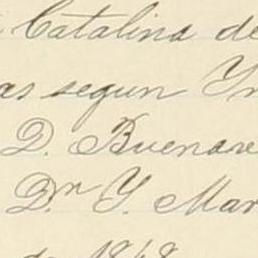 Catalina de
as segun Yn
D. Buenave
Dn Y. Mar
de 1848